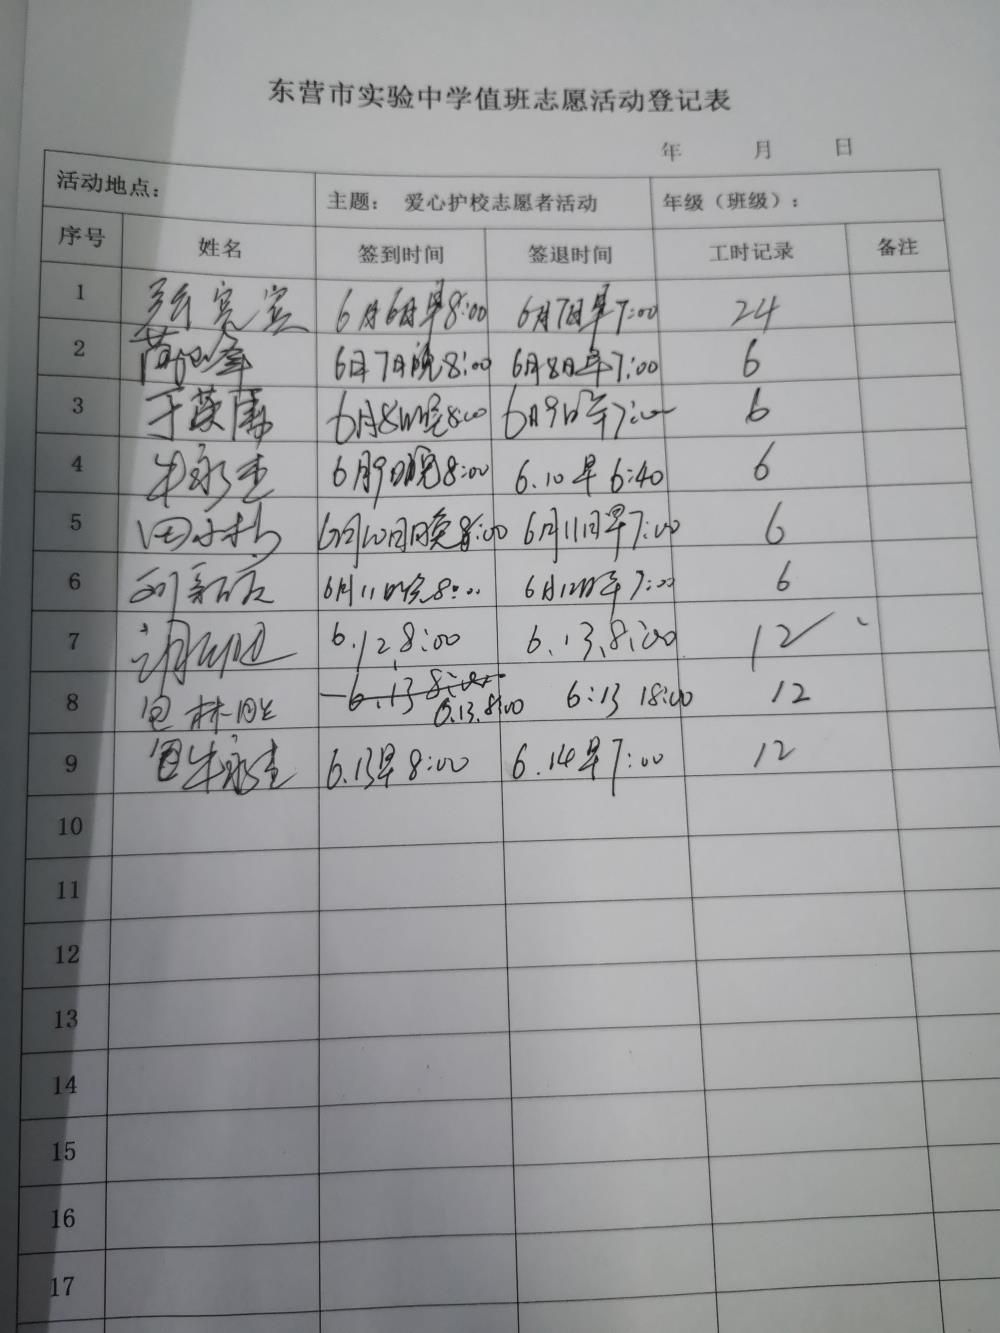 东营市实验中学值班志愿活动登记表
年 月 日
活动地点： 主题： 爱心护校志愿者活动 年级（班级）：
序号 姓名 签到时间 签退时间 工时记录 备注
1 6月6日早8:00 6月7日早7:00 24
2 6月7日晚8:00 6月8日早7:00 6
3 6月8日晚8:00 6月9日早7:00 6
4 牛永吉 6月9日晚8:00 6.10早6:40 6
5 6月10日晚8:00 6月11日早7:00 6
6 6月11日晚8:00 6月12日早7:00 6
7 6.12 8:00 6.13.8:00 12
8 6.13 8:00 6.13.8:00 6:13 18:00 12
9 牛永吉 6.13早8:00 6.14早7:00 12
10
11
12
13
14
15
16
17